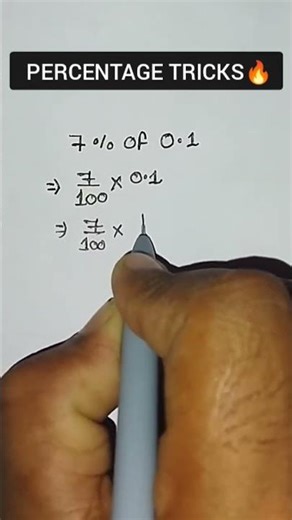 PERCENTAGE TRICKS🔥
7% of 0.1
⇒ 7/100 × 0.1
⇒ 7/100 × 1